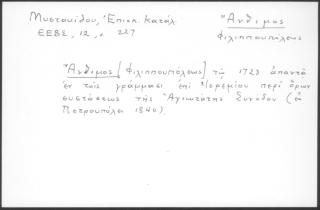 Μυσταυίδου, Ἐπισκ. Κατάλ.
ΕΕΒΣ, 12, σ. 227
Ἄνθιμος
Φιλιππουπόλεως
Ἄνθιμος [Φιλιππουπόλεως] τῷ 1723 ἀπαντᾷ
ἐν τοῖς γράμμασι ἐπὶ Ἱερεμίου περὶ ὅρων
συστάσεως τῆς Ἁγιωτάτης Συνόδου (ἐν
Πετρουπόλει 1840)